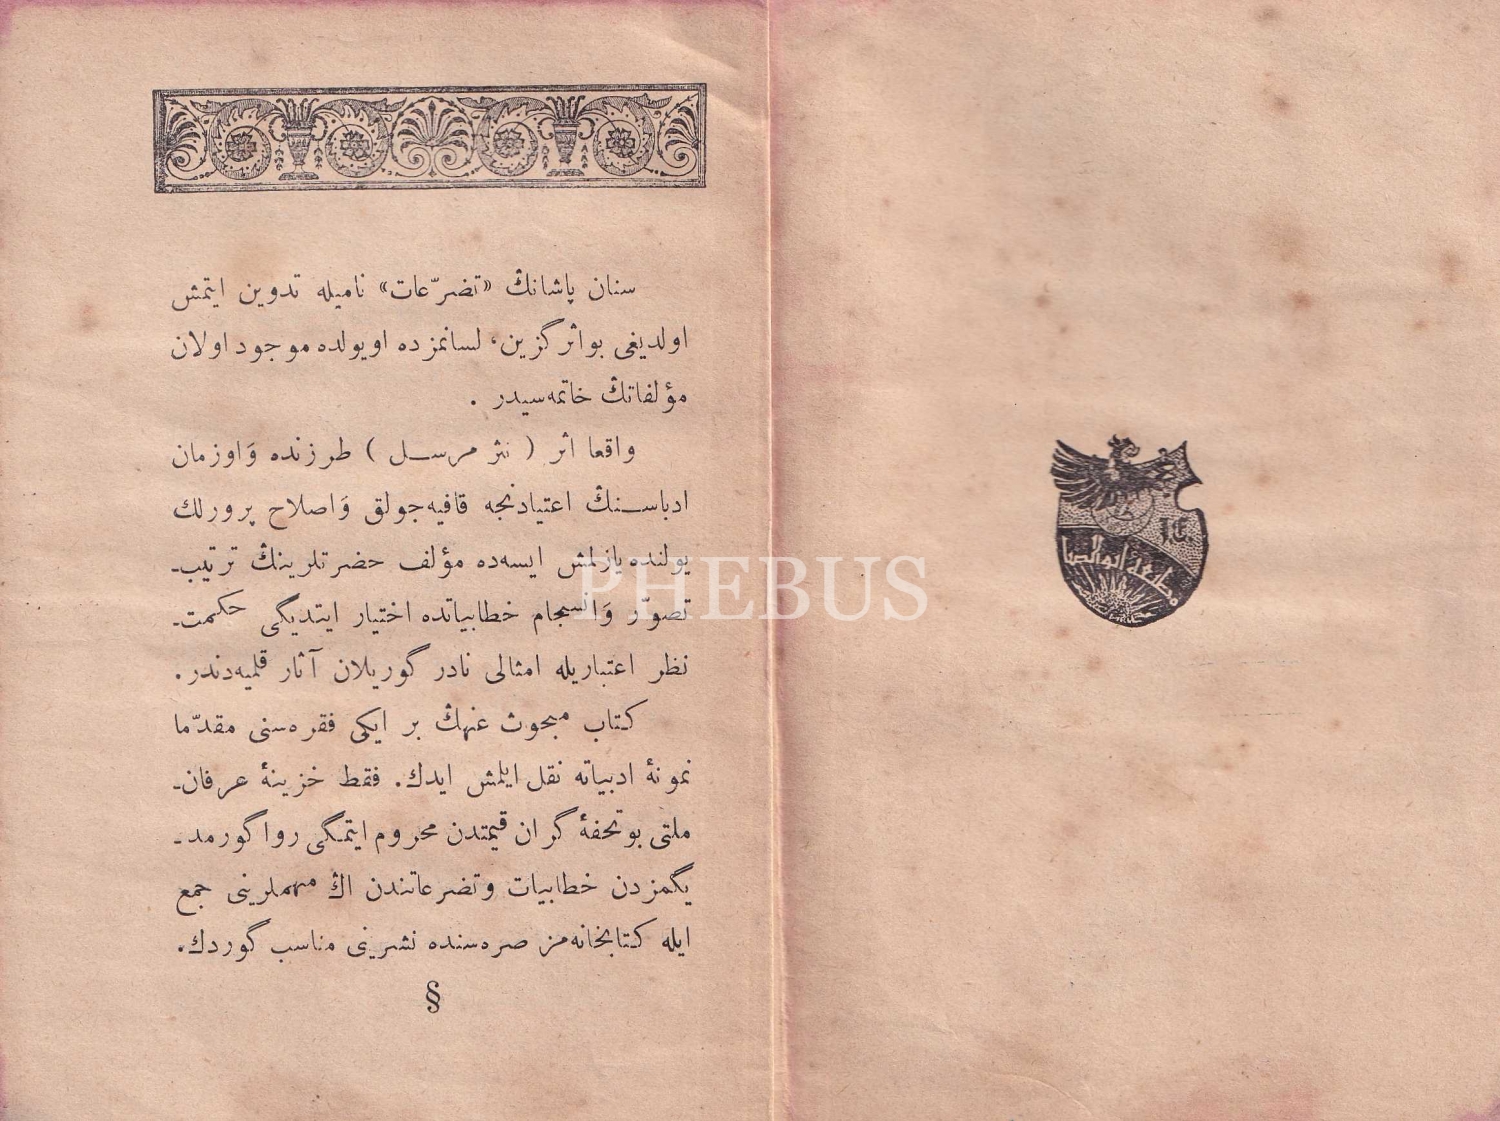 مطبعهٔ ابوالضيا
سنان پاشانڭ «تضرّعات» ناميله تدوين ايتمش
اولديغى بو اثر گزين، لسانمزده او يولده موجود اولان
مؤلفاتڭ خاتمه‌سيدر .
واقعا اثر ( نثر مرسل ) طرزنده وَ اوزمان
ادباسنڭ اعتيادنجه قافيه‌جولق وَ اصلاح پرورلك
يولنده يازلمش ايسه‌ده مؤلف حضرتلرينڭ ترتيب-
تصوّر وَ انسجام خطابياتده اختيار ايتديگى حكمت-
نظر اعتباريله امثالى نادر گوريلان آثار قلميه‌دندر.
كتاب مبحوث عنهڭ بر ايكى فقره‌سنى مقدّما
نمونهٔ ادبياته نقل ايلمش ايدك. فقط خزينهٔ عرفان-
ملتى بو تحفهٔ گران قيمتدن محروم ايتمگى روا گورمد-
يگمزدن خطابيات و تضرعاتندن اڭ مهملرينى جمع
ايله كتابخانه‌مز صره‌سنده نشرينى مناسب گوردك.
§
PHEBUS